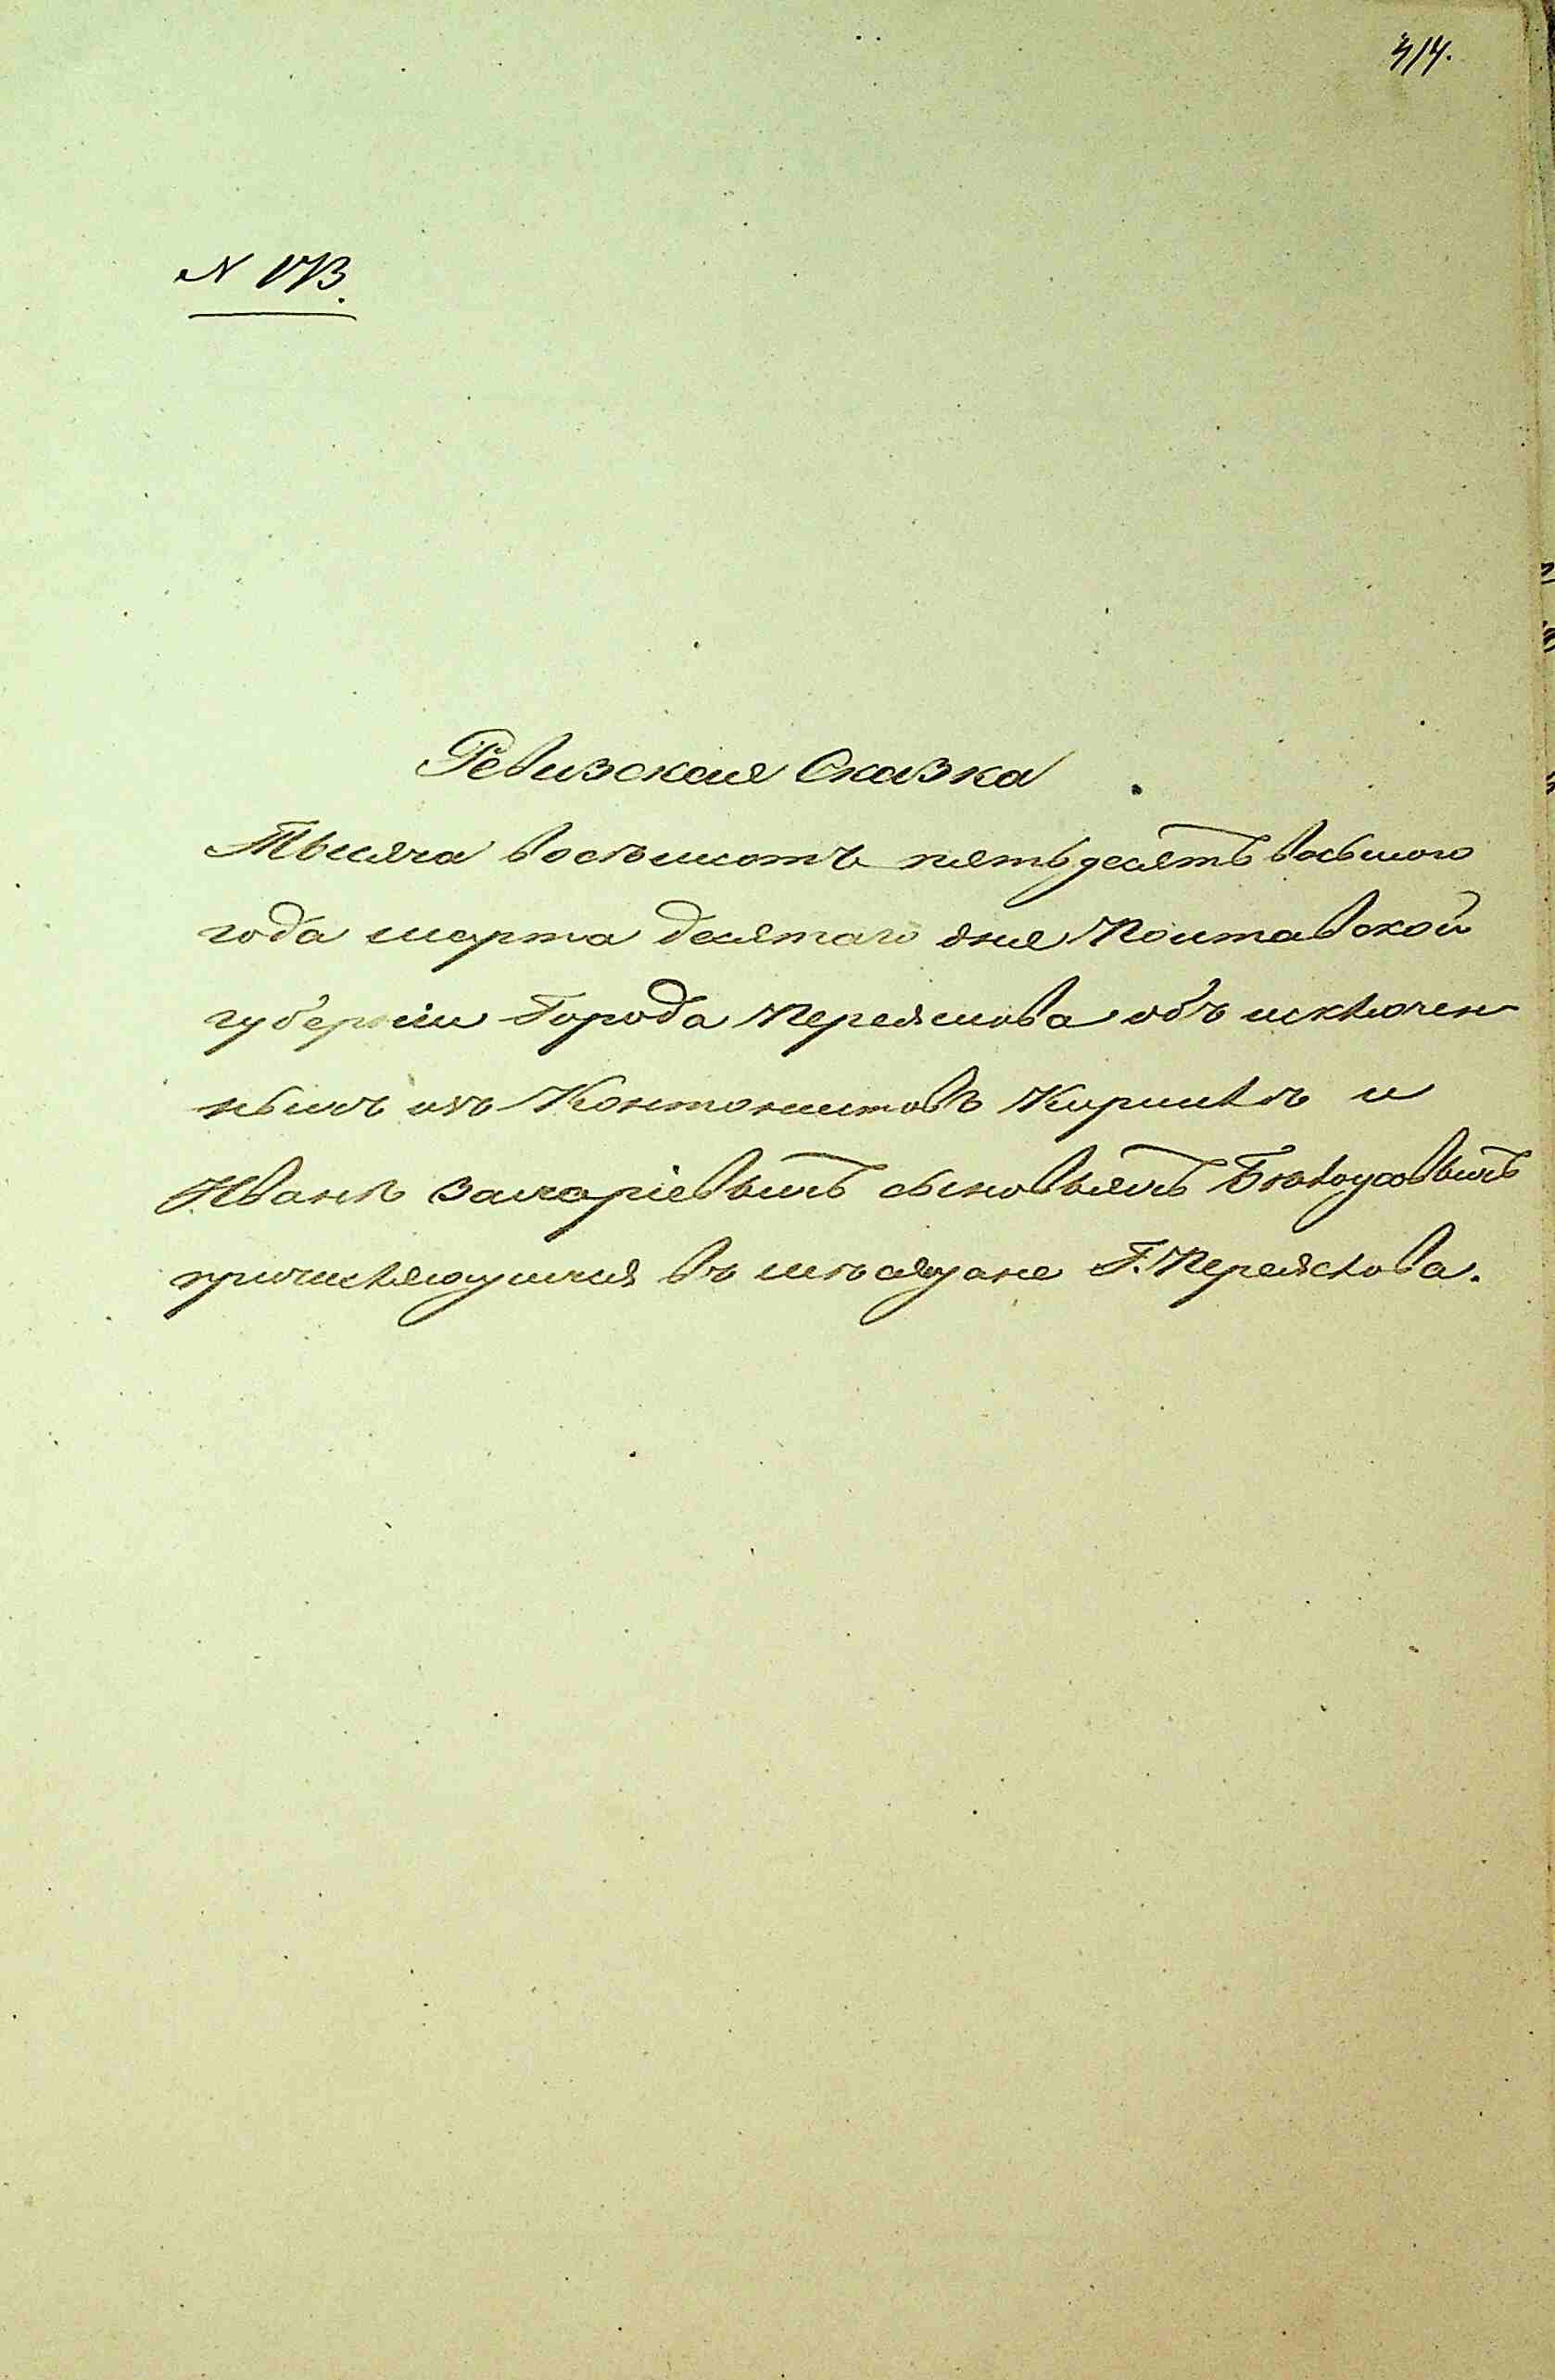 414.
N 173.
Ревизская Сказка
Тысяча восѣмсотъ пятьдесятъ восьмого
года марта десятаго дня Полтавской
губерніи Города Переяслова объ исключен
ныхъ изъ Кантонистовъ Кирилѣ и
Иванѣ Захаріевыхъ сыновьяхъ Бѣлоусовыхъ
причисляющихся въ мѣщане Г. Переяслова.